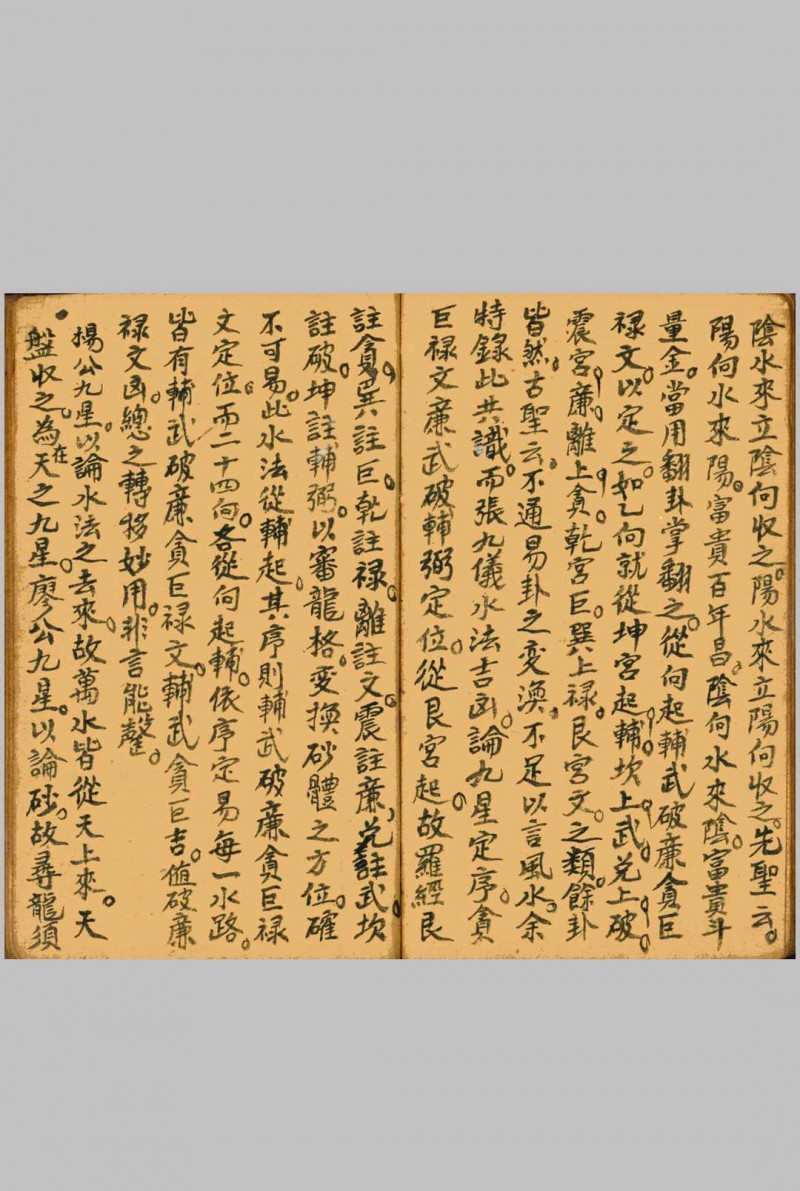 陰水來立陰向收之。陽水來立陽向收之。先聖云。
陽向水來陽。富貴百年昌。陰向水來陰。富貴斗
量金。當用翻卦掌翻之。從向起輔武破廉貪巨
禄文。以定之。如乙向就從坤宮起輔。坎上武。兑上破。
震宮廉。離上貪。乾宮巨。巽上禄。艮宮文。之類。餘卦
皆然。古聖云。不通易卦之变渙。不足以言風水。余
特錄此共識。而張九儀水法吉凶。論九星定序。貪
巨禄文廉武破輔弼定位。從艮宮起。故羅經艮
註貪。巽註巨。乾註禄。離註文。震註廉。兑註武。坎
註破。坤註輔弼。以審龍格。变換砂體之方位。確
不可易。此水法從輔起。其序則輔武破廉貪巨禄
文定位。而二十四向。各從向起輔。依序定易每一水路。
皆有輔武破廉貪巨禄文。輔武貪巨吉。值破廉
禄文凶。總之轉移妙用。非言能罄。
楊公九星。以論水法之去來。故萬水皆從天上來。天
盤收之。為在天之九星。廖公九星。以論砂。故尋龍須